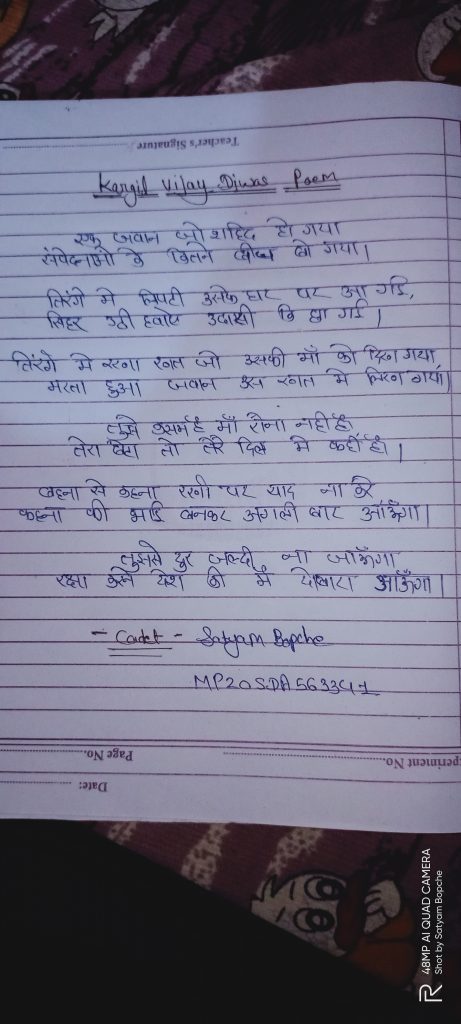 Teacher's Signature
Kargil Vijay Diwas Poem
एक जवान जो शहिद हो गया
संवेदनाओ के कितने बीज बो गया।
तिरंगे मे लिपटी उसके घर पर आ गई,
सिहर उठी हवाएँ उदासी कि छा गई।
तिरंगे मे रखा खत जो उसकी माँ को दिया गया,
मरता हुआ जवान उस खत मे लिख गया।
तुझे कसम है माँ रोना नही है,
तेरा बेटा तो तेरे दिल मे कहीं है।
बहना से कहना राखी पर याद ना करे
कहना की भाई बनकर अगली बार आऊँगा।
तुमसे दुर जल्दी ना जाऊँगा
रक्षा करने देश की मैं दोबारा आऊँगा।
- Cadet - Satyam Bopche
MP20SDA563341
Page No.
periment No.
Date:
48MP AI QUAD CAMERA
Shot by Satyam Bopche